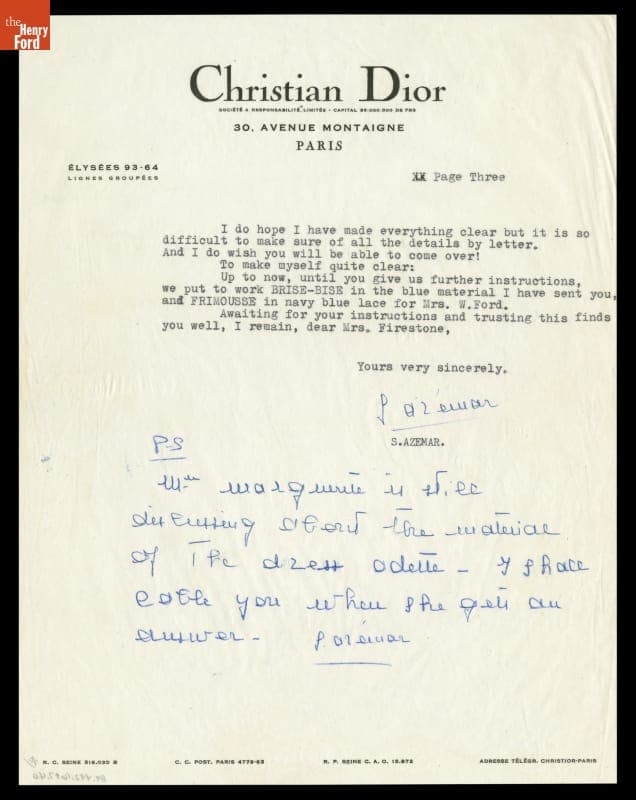 the
Henry
Ford
Christian Dior
SOCIÉTÉ A RESPONSABILITÉ LIMITÉE - CAPITAL 50.000.000 DE FRS
30, AVENUE MONTAIGNE
PARIS
ÉLYSÉES 93-64
LIGNES GROUPÉES
Page Three
I do hope I have made everything clear but it is so
difficult to make sure of all the details by letter.
And I do wish you will be able to come over!
To make myself quite clear:
Up to now, until you give us further instructions,
we put to work BRISE-BISE in the blue material I have sent you,
and FRIMOUSSE in navy blue lace for Mrs. W.Ford.
Awaiting for your instructions and trusting this finds
you well, I remain, dear Mrs. Firestone,
Yours very sincerely.
S azémar
S.AZEMAR.
P-S
Mme marguerite is still
discussing about the material
of The dress odette - I shall
cable you when she gets an
answer -
S azémar
R. C. SEINE 316.030 B
C. C. POST. PARIS 4778-63
R. P. SEINE C. A. O. 15.872
ADRESSE TÉLÉGR. CHRISTIOR-PARIS